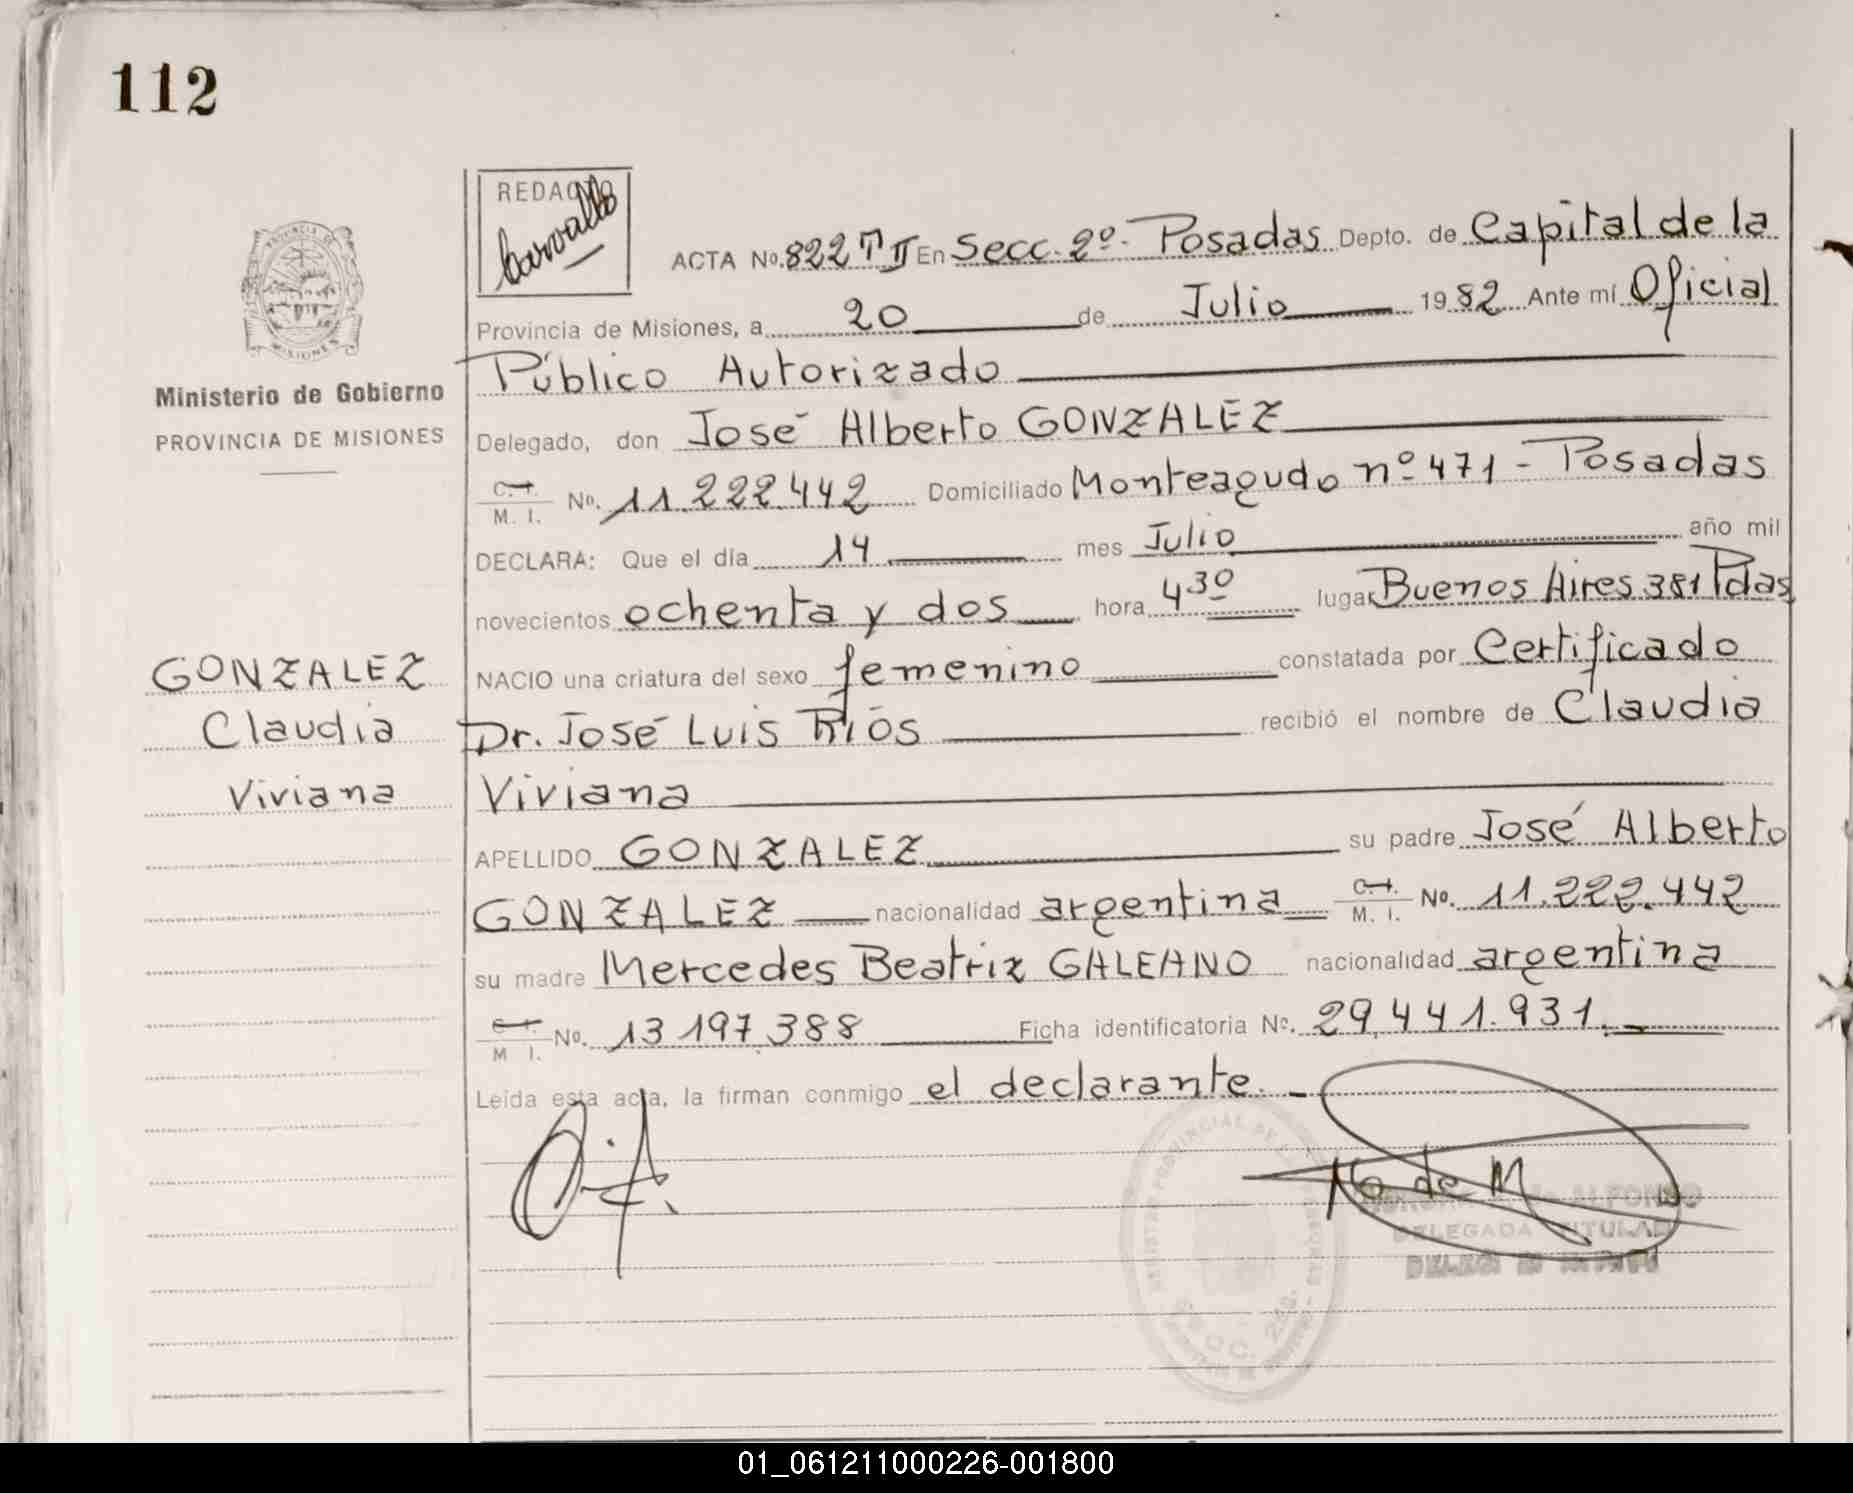 112
REDACTO
Carvallo
ACTA No. 822 TII En Secc. 2º- Posadas Depto. de Capital de la
Provincia de Misiones, a 20 de Julio 1982 Ante mí Oficial
Público Autorizado
Ministerio de Gobierno
PROVINCIA DE MISIONES
Delegado, don José Alberto GONZALEZ
C. I. / M. I. No. 11.222.442 Domiciliado Monteagudo nº 471 - Posadas
DECLARA: Que el día 14 mes Julio año mil
novecientos ochenta y dos hora 4 30 lugar Buenos Aires 381 Pdas
GONZALEZ
Claudia
Viviana
NACIO una criatura del sexo femenino constatada por Certificado
Dr. José Luis Ríos recibió el nombre de Claudia
Viviana
APELLIDO GONZALEZ su padre José Alberto
GONZALEZ nacionalidad argentina C. I. / M. I. No. 11.222.442
su madre Mercedes Beatriz GALEANO nacionalidad argentina
C. I. / M. I. No. 13 197.388 Ficha identificatoria No. 29.441.931.
Leída esta acta, la firman conmigo el declarante.
ALFONSO
DELEGADA TITULAR
01_061211000226-001800